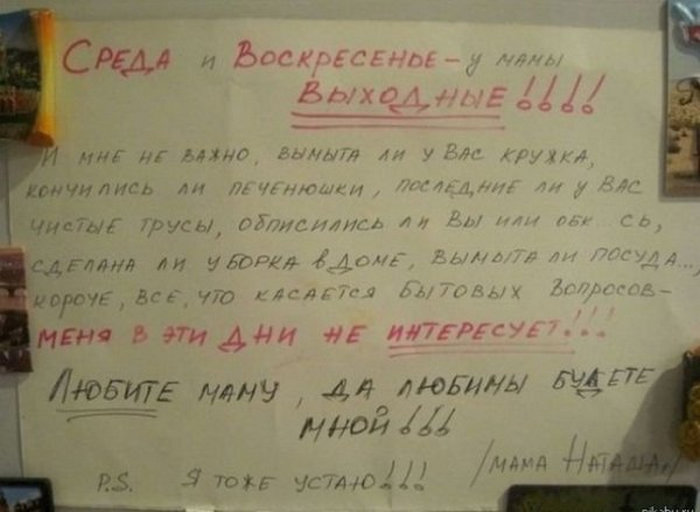 СРЕДА и ВОСКРЕСЕНЬЕ – у мамы
ВЫХОДНЫЕ!!!!
И мне не важно, вымыта ли у Вас кружка,
кончились ли печенюшки, последние ли у Вас
чистые трусы, обписились ли Вы или обк...сь,
сделана ли уборка в доме, вымыта ли посуда...,
короче, все, что касается бытовых вопросов –
МЕНЯ В ЭТИ ДНИ НЕ ИНТЕРЕСУЕТ!!!
Любите маму, да любимы будете
мной!!!
/мама Наташа/
P.S. Я тоже устаю!!!
pikabu.ru